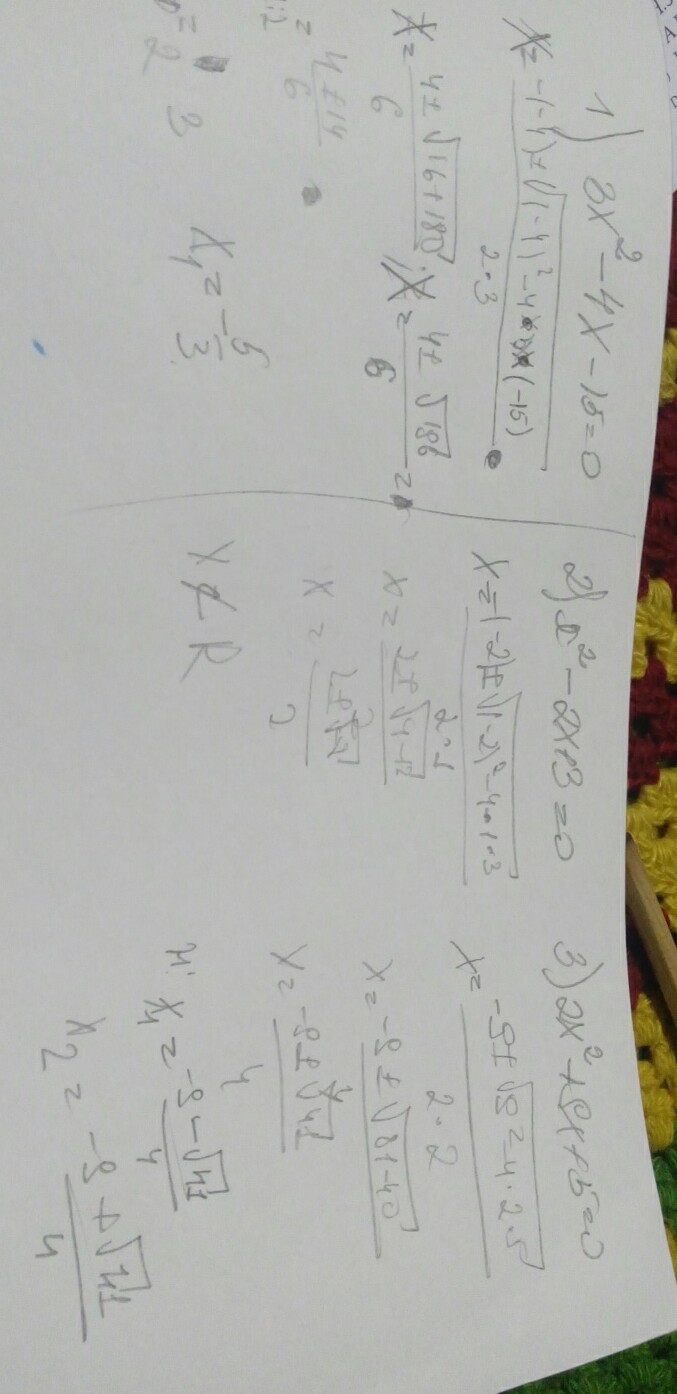 1) 3x² - 4x - 15 = 0
x = -(-4) ± √(-4)² - 4 (-15)
2·3
x = 4 ± √16 + 180
6
x = 4 ± √196 =
6
= 4 ± 14
6
3
x₁ = - 5/3
2) x² - 2x + 3 = 0
x = (-2) ± √(-2)² - 4·1·3
2·1
x = 2 ± √4 - 12
2
x = 2 ±
2
X ⊄ R
3) 2x² + 9x + 5 = 0
x = -9 ± √9² - 4·2·5
2·2
x = -9 ± √81 - 40
4
x = -9 ± √41
4
x₁ = -9 - √41
4
x₂ = -9 + √41
4